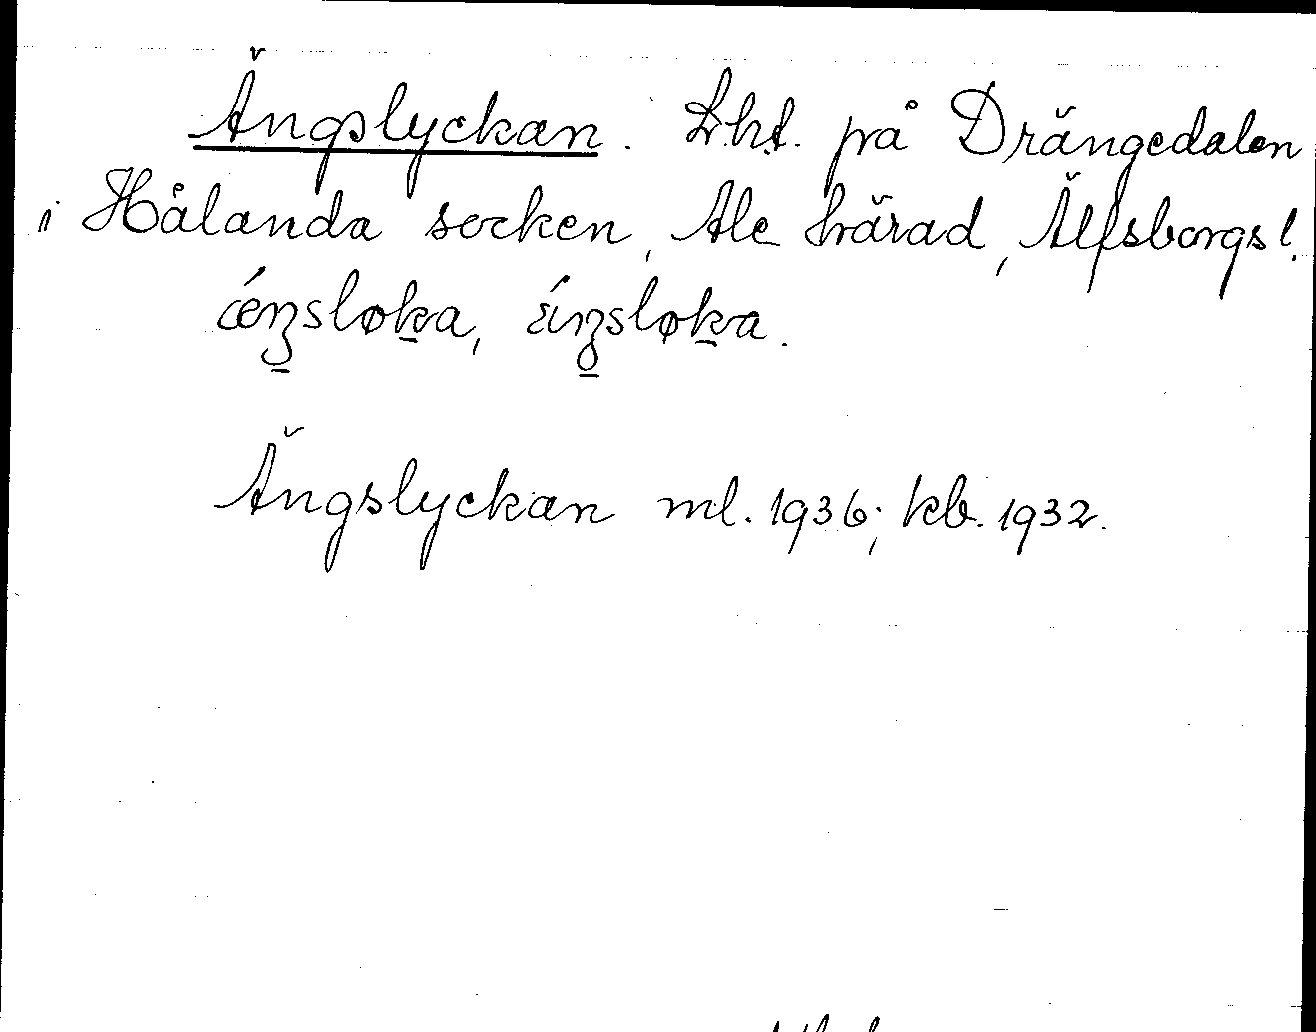 Ängslyckan. Lht. på Drängedalen
i Hålanda socken, Ale härad, Älfsborgs l.
Ängslyckan ml. 1936; kb. 1932.